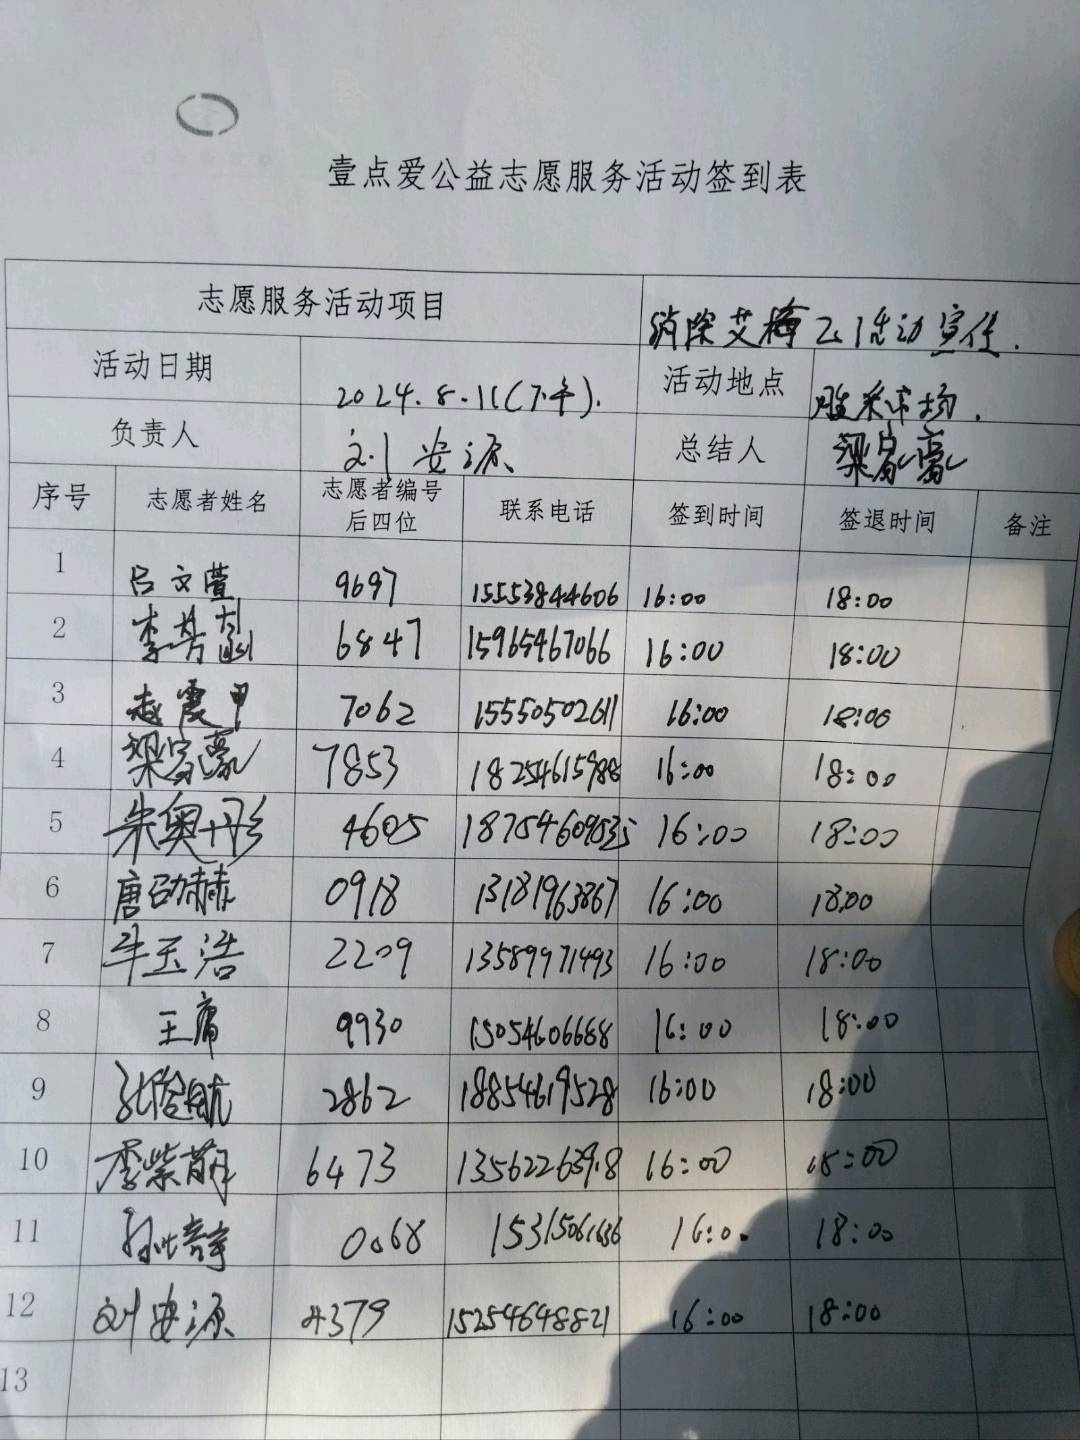 壹点爱公益志愿服务活动签到表
志愿服务活动项目 消除艾梅乙活动宣传.
活动日期 2024.8.11(下午). 活动地点 胜采市场.
负责人 刘安源 总结人 梁家豪
序号 志愿者姓名 志愿者编号后四位 联系电话 签到时间 签退时间 备注
1 吕文萱 9697 15553844606 16:00 18:00
2 李芮涵 6847 15965467066 16:00 18:00
3 赵霞甲 7062 15550502611 16:00 18:00
4 梁家豪 7853 18254615988 16:00 18:00
5 朱奥彤 4605 16:00 18:00
6 唐劭赫 0918 13181963867 16:00 18:00
7 牛玉浩 2209 13589971493 16:00 18:00
8 王席 9930 15054606688 16:00 18:00
9 航 2862 18854619528 16:00 18:00
10 李紫萌 6473 16:00 18:00
11 孙 0068 16:00 18:00
12 刘安源 4379 15254648821 16:00 18:00
13